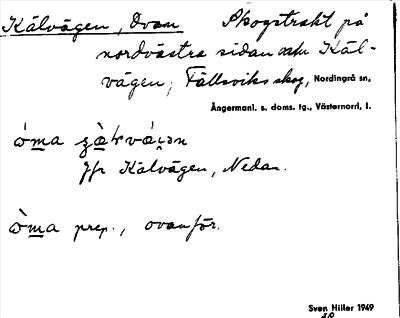 Kälvägen, Ovan Skogstrakt på
nordvästra sidan Käl-
vägen, Fällsviks skog, Nordingrå sn,
Ångermanl. s. doms. tg., Västernorrl. l.
Jfr Kälvägen, Nedan.
prep., ovanför.
Sven Hiller 1949